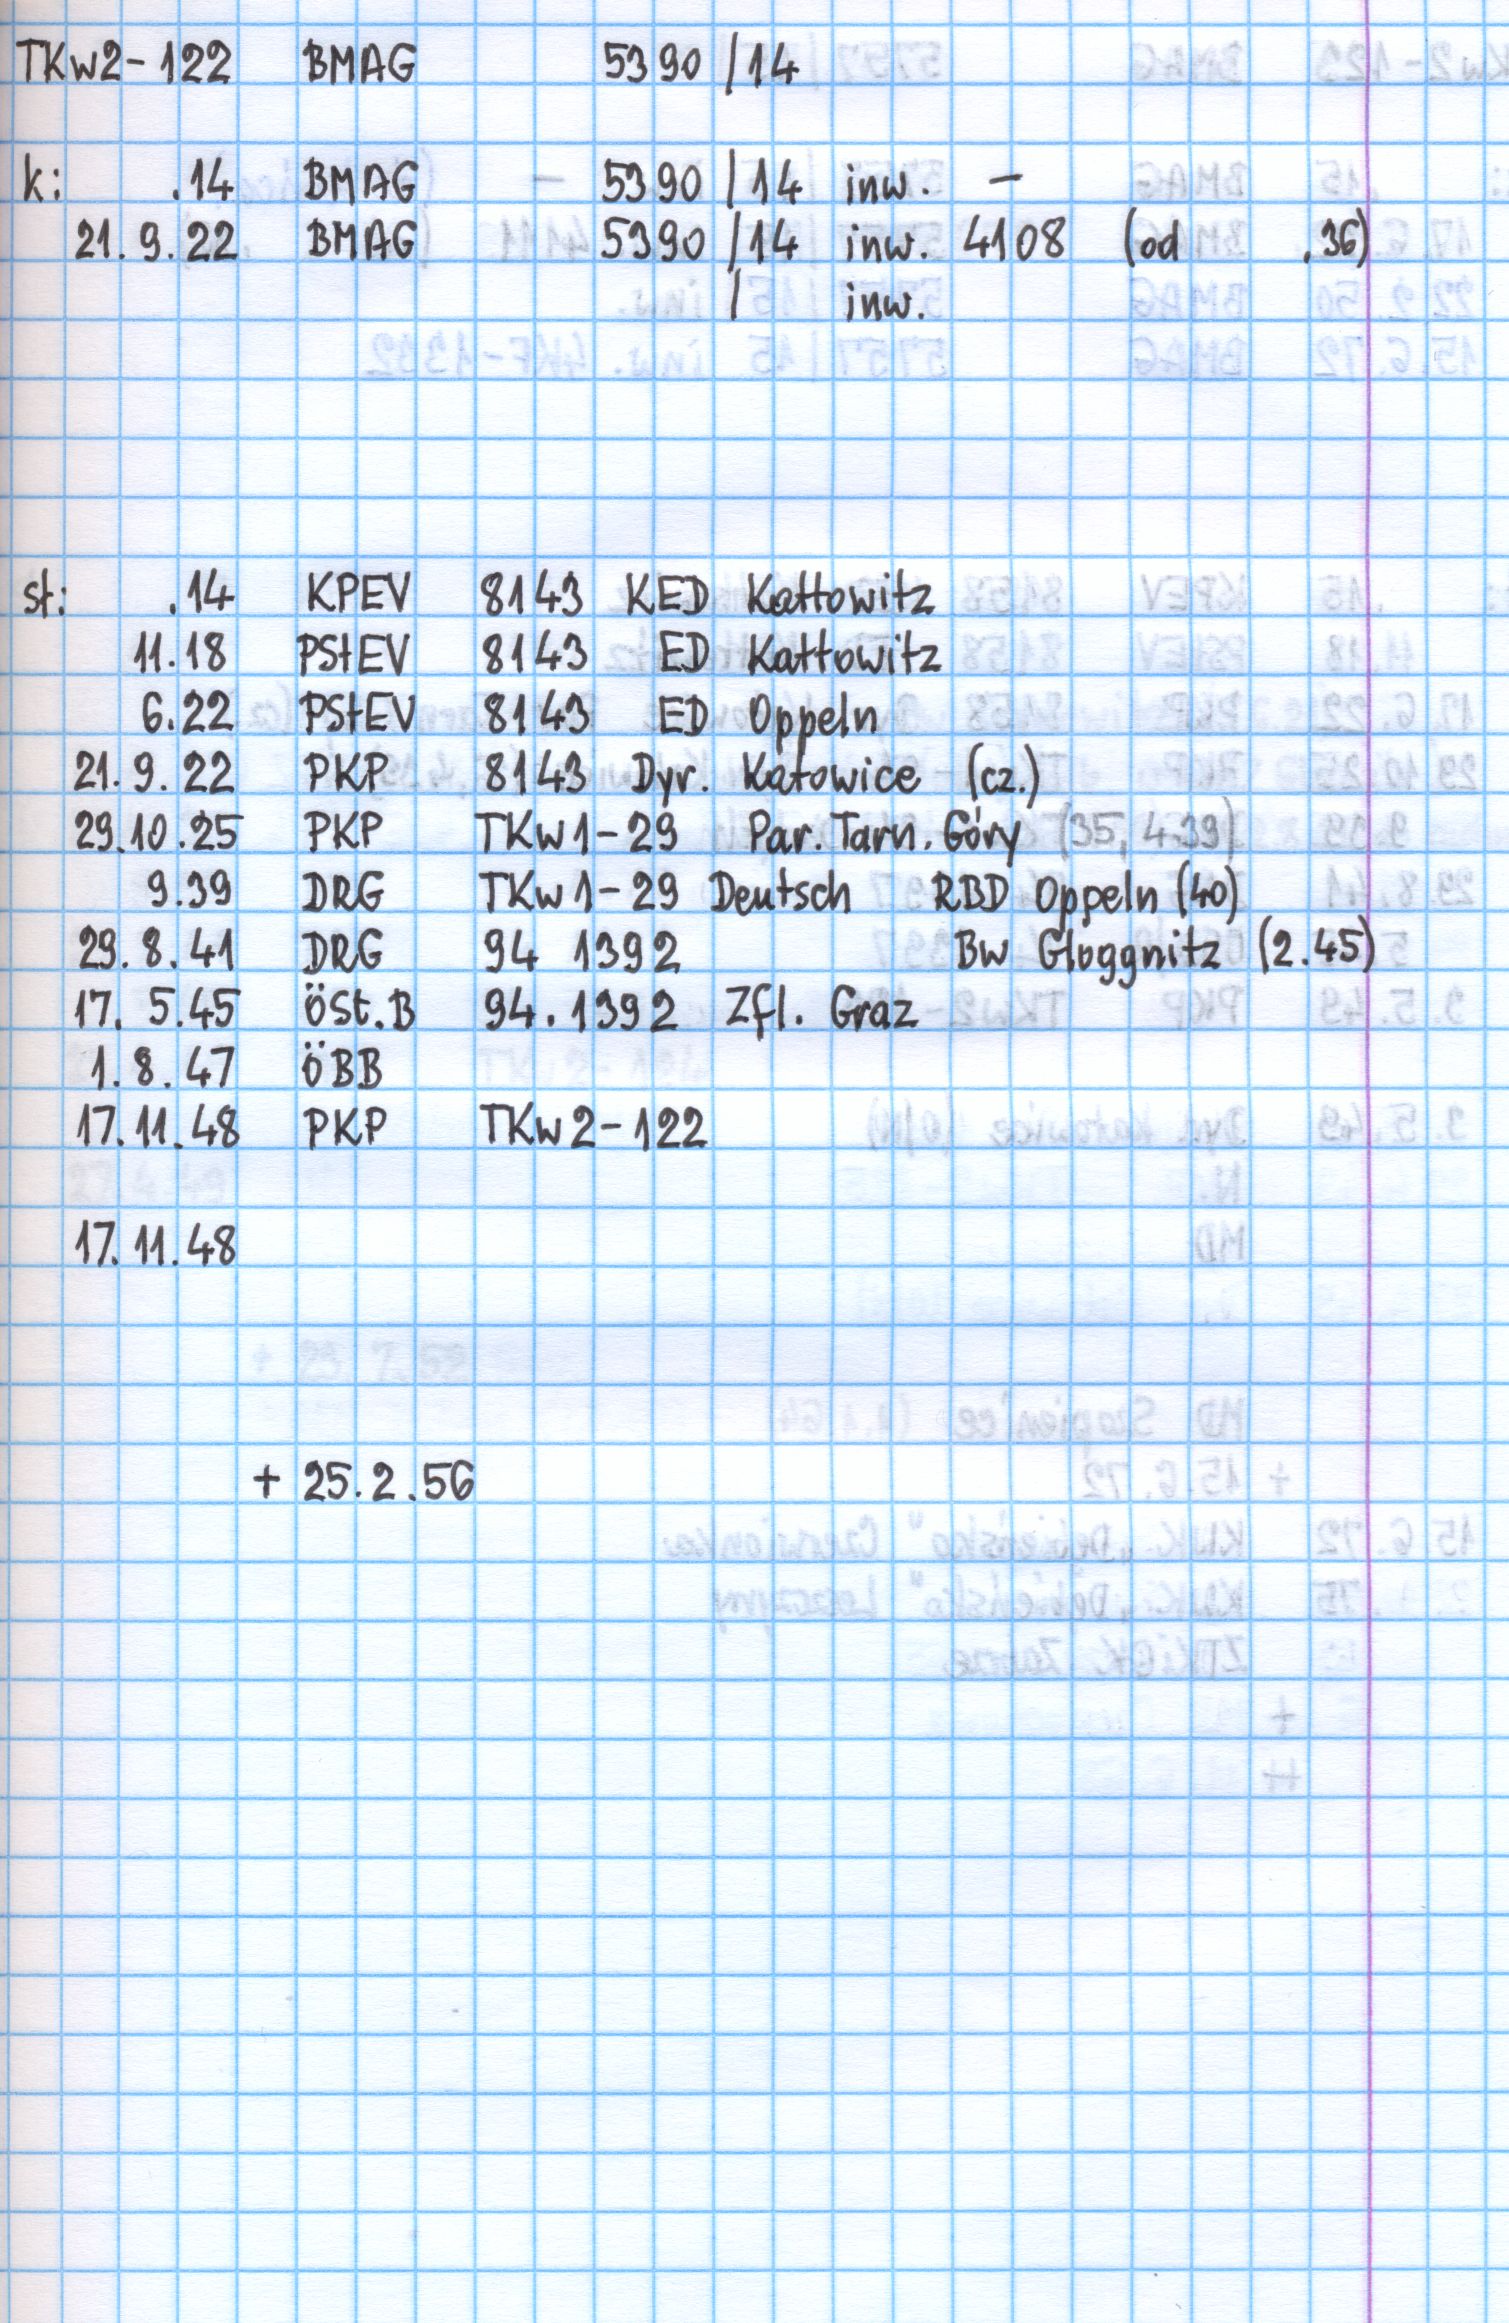 TKw2-122 BMAG 5390/14
k: .14 BMAG 5390/14 inw. -
21.9.22 BMAG 5390/14 inw. 4108 (od .36)
/ inw.
st: .14 KPEV 8143 KED Kattowitz
11.18 PStEV 8143 ED Kattowitz
6.22 PStEV 8143 ED Oppeln
21.9.22 PKP 8143 Dyr. Katowice (cz.)
29.10.25 PKP TKw1-29 Par. Tarn. Góry (35, 4.39)
9.39 DRG TKw1-29 Deutsch RBD Oppeln (40)
29.8.41 DRG 94 1392 Bw Gloggnitz (2.45)
17.5.45 ÖSt.B 94.1392 Zfl. Graz
1.8.47 ÖBB
17.11.48 PKP TKw2-122
17.11.48
+ 25.2.56